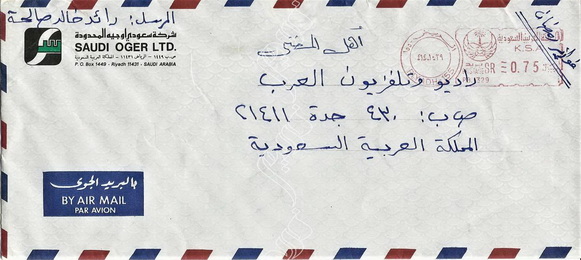 المرسل: رائد خالد صالحة
شركة سعودي أوجيه المحدودة
SAUDI OGER LTD.
ص.ب ١٤٤٩ - الرياض ١١٤٣١ - المملكة العربية السعودية
P.O.Box 1449 - Riyadh 11431 - SAUDI ARABIA
K.S.A.
0.75
راديو وتلفزيون العرب
ص.ب: ٤٣٠ جدة ٢١٤١١
المملكة العربية السعودية
بالبريد الجوي
BY AIR MAIL
PAR AVION